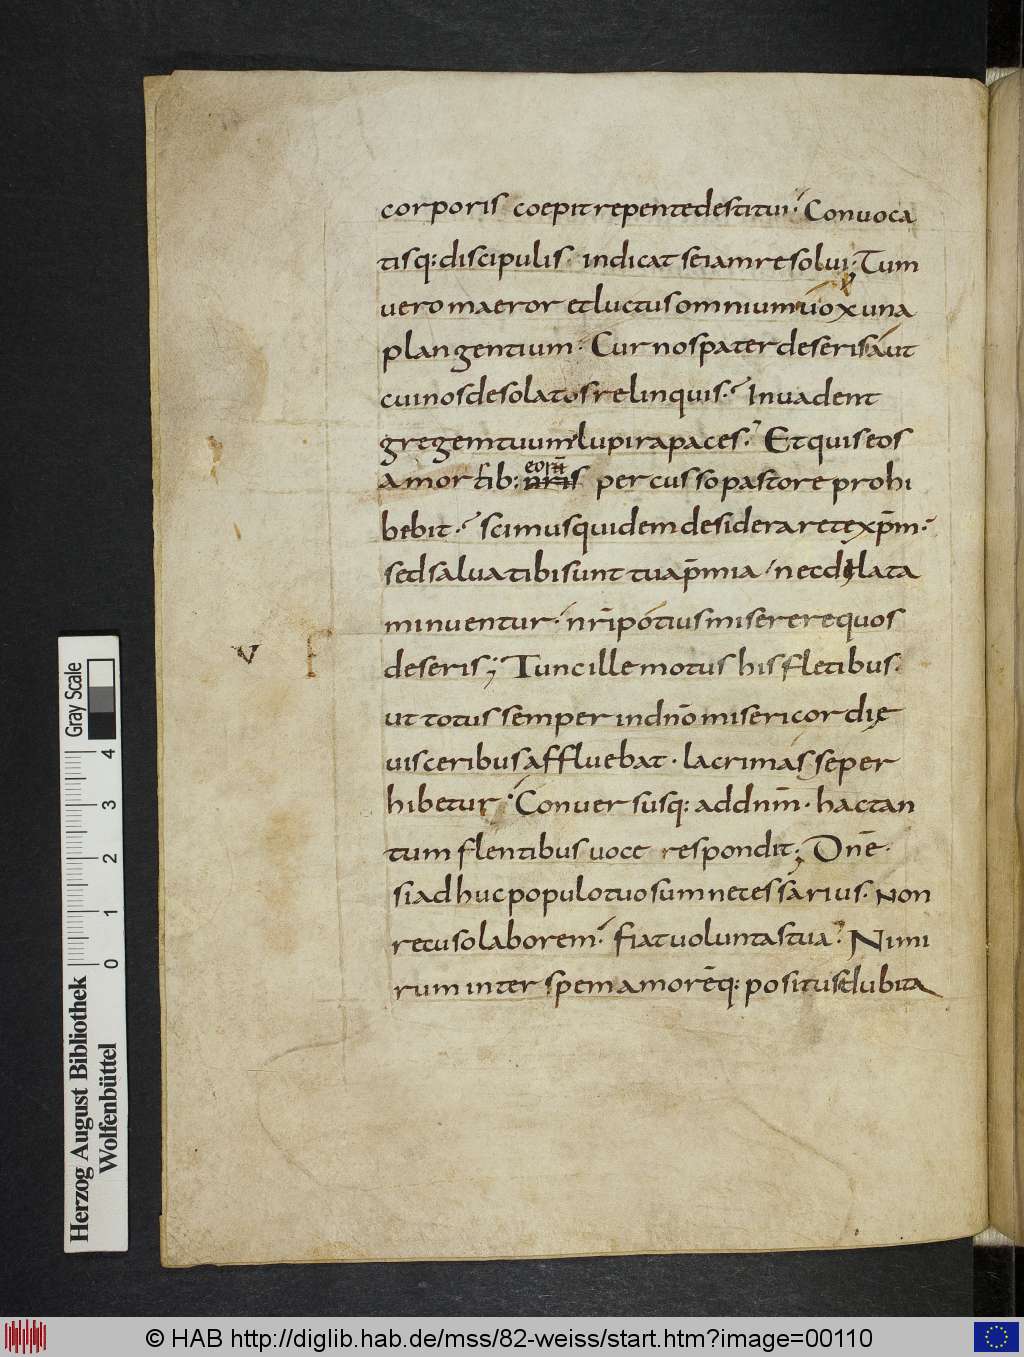 corporis coepit repente destitui· Convoca
tisq: discipulis· indicat se iam resolui; Tum
vero maeror et luctus omnium vóx una
plangentium· Cur nos pater deseris aut
cui nos desolatos relinquis·? Invadent
gregem tuum lupi rapaces·? Et quis eos
eoꝝ
a morsib: nr̄is percusso pastore prohi
bebit·? scimus quidem desiderare te xp̄m·
sed salva tibi sunt tua p̄mia· nec dilata
minuentur· nr̄i potius miserere quos
deseris; Tunc ille motus his fletibus·
ut totus semper in dn̄o misericordię
visceribus affluebat· lacrimasse per
hibetur· Conversusq: ad dn̄m· hac tan
tum flentibus voce respondit; Dn̄e·
si adhuc populo tuo sum necessarius· non
recuso laborem· fiat voluntas tua· Nimi
rum inter spem amorēq: positus dubita
v
Gray Scale
4
3
2
1
0
Herzog August Bibliothek
Wolfenbüttel
© HAB http://diglib.hab.de/mss/82-weiss/start.htm?image=00110